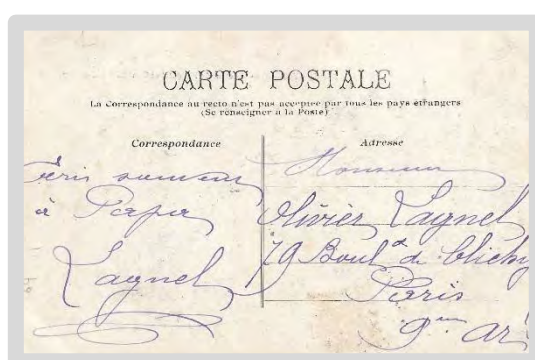 CARTE POSTALE
La Correspondance au recto n'est pas acceptée par tous les pays étrangers
(Se renseigner à la Poste)
Correspondance
Adresse
souvenir
à Papa
Lagnel
Monsieur
Olivier Lagnel
79 Boul^d de Clichy
Paris
9^me Ar^t